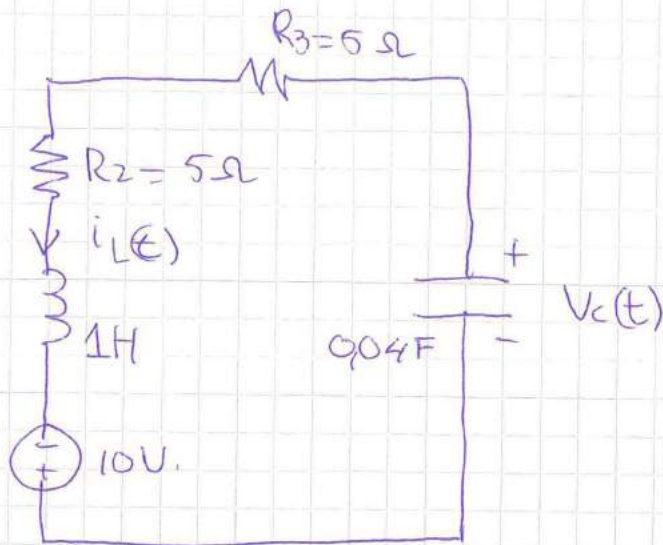 R3=5 Ω
R2= 5Ω
iL(t)
+
Vc(t)
1H
0,04F
-
-
+
10V.